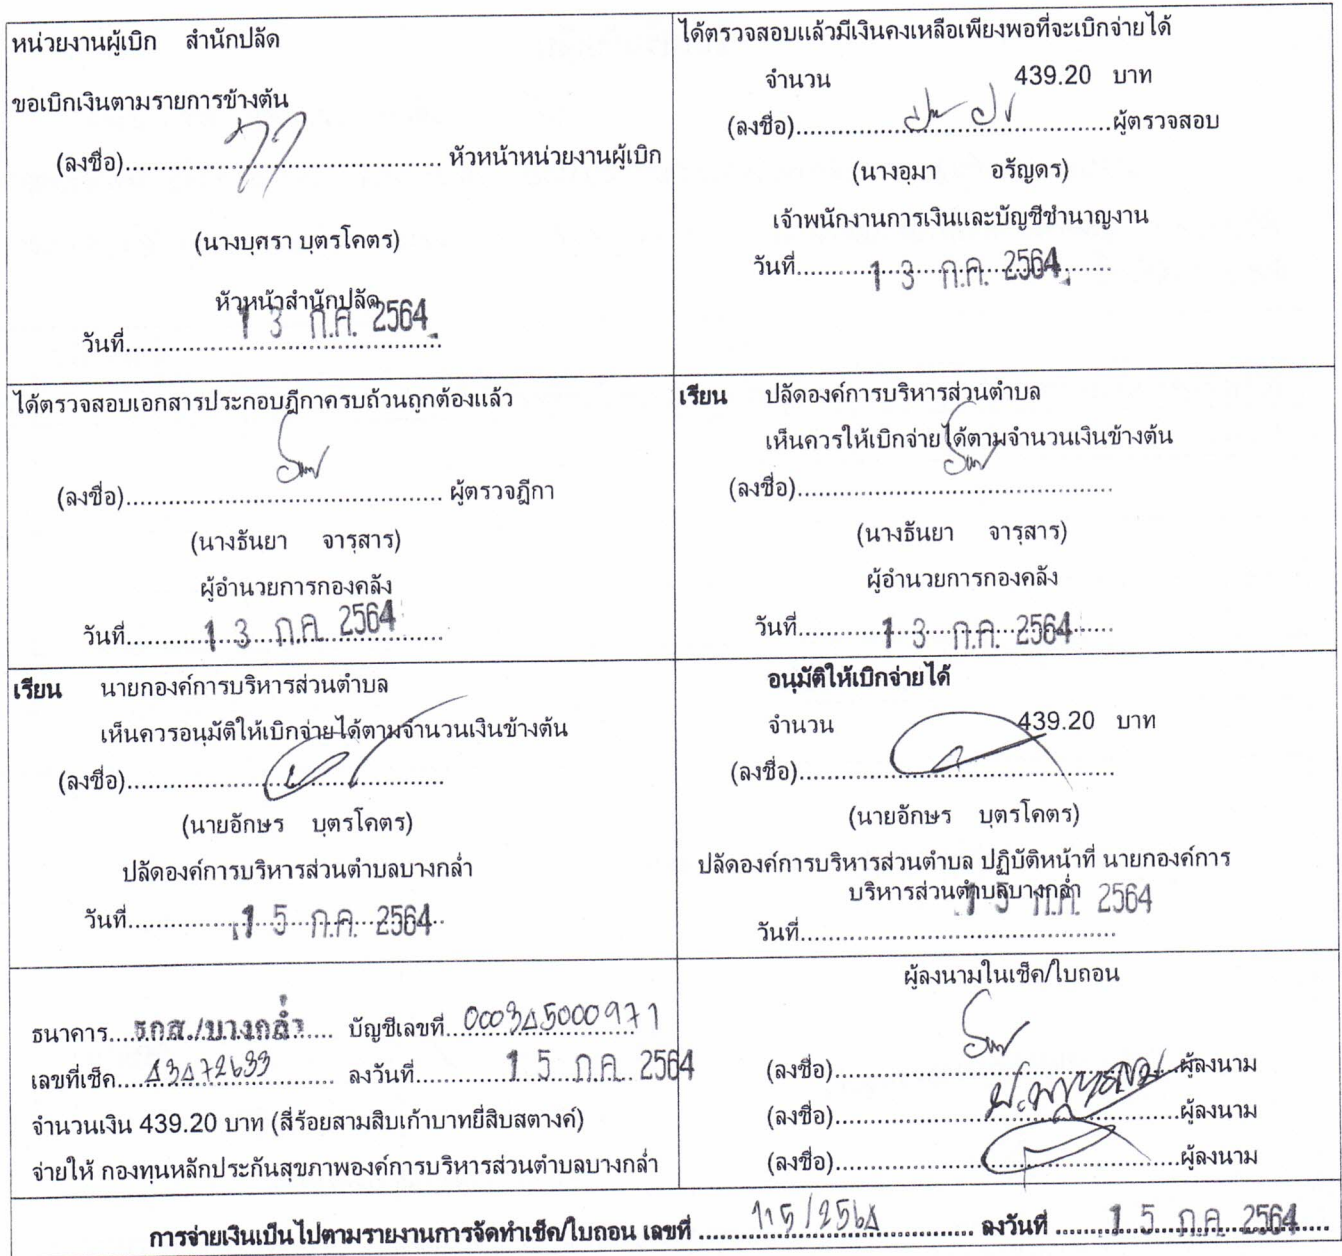 หน่วยงานผู้เบิก สำนักปลัด
ขอเบิกเงินตามรายการข้างต้น
(ลงชื่อ)............................................ หัวหน้าหน่วยงานผู้เบิก
(นางบุศรา บุตรโคตร)
หัวหน้าสำนักปลัด
วันที่ 13 ก.ค. 2564
ได้ตรวจสอบแล้วมีเงินคงเหลือเพียงพอที่จะเบิกจ่ายได้
จำนวน 439.20 บาท
(ลงชื่อ)............................................ผู้ตรวจสอบ
(นางอุมา อรัญดร)
เจ้าพนักงานการเงินและบัญชีชำนาญงาน
วันที่ 13 ก.ค. 2564
ได้ตรวจสอบเอกสารประกอบฎีกาครบถ้วนถูกต้องแล้ว
(ลงชื่อ)............................................ ผู้ตรวจฎีกา
(นางธันยา จารุสาร)
ผู้อำนวยการกองคลัง
วันที่ 13 ก.ค. 2564
เรียน ปลัดองค์การบริหารส่วนตำบล
เห็นควรให้เบิกจ่ายได้ตามจำนวนเงินข้างต้น
(ลงชื่อ)............................................
(นางธันยา จารุสาร)
ผู้อำนวยการกองคลัง
วันที่ 13 ก.ค. 2564
เรียน นายกองค์การบริหารส่วนตำบล
เห็นควรอนุมัติให้เบิกจ่ายได้ตามจำนวนเงินข้างต้น
(ลงชื่อ)............................................
(นายอักษร บุตรโคตร)
ปลัดองค์การบริหารส่วนตำบลบางกล่ำ
วันที่ 15 ก.ค. 2564
อนุมัติให้เบิกจ่ายได้
จำนวน 439.20 บาท
(ลงชื่อ)............................................
(นายอักษร บุตรโคตร)
ปลัดองค์การบริหารส่วนตำบล ปฏิบัติหน้าที่ นายกองค์การ
บริหารส่วนตำบลบางกล่ำ
15 ก.ค. 2564
วันที่............................................
ธนาคาร....ธกส./บางกล่ำ..... บัญชีเลขที่ 000345000971
เลขที่เช็ค 43472633 ลงวันที่ 15 ก.ค. 2564
จำนวนเงิน 439.20 บาท (สี่ร้อยสามสิบเก้าบาทยี่สิบสตางค์)
จ่ายให้ กองทุนหลักประกันสุขภาพองค์การบริหารส่วนตำบลบางกล่ำ
ผู้ลงนามในเช็ค/ใบถอน
(ลงชื่อ)............................................ผู้ลงนาม
(ลงชื่อ)............................................ผู้ลงนาม
(ลงชื่อ)............................................ผู้ลงนาม
การจ่ายเงินเป็นไปตามรายงานการจัดทำเช็ค/ใบถอน เลขที่ 115/2564 ลงวันที่ 15 ก.ค. 2564